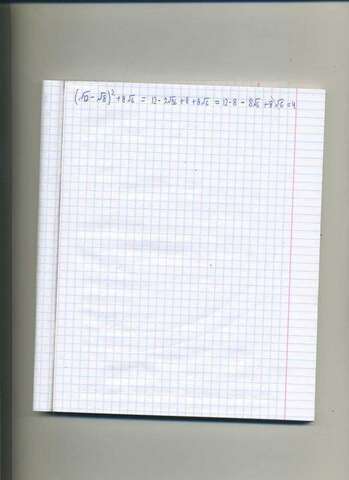 (√12 - √8)² + 8√6 = 12 - 2√96 + 8 + 8√6 = 12-8 - 8√6 + 8√6 = 4